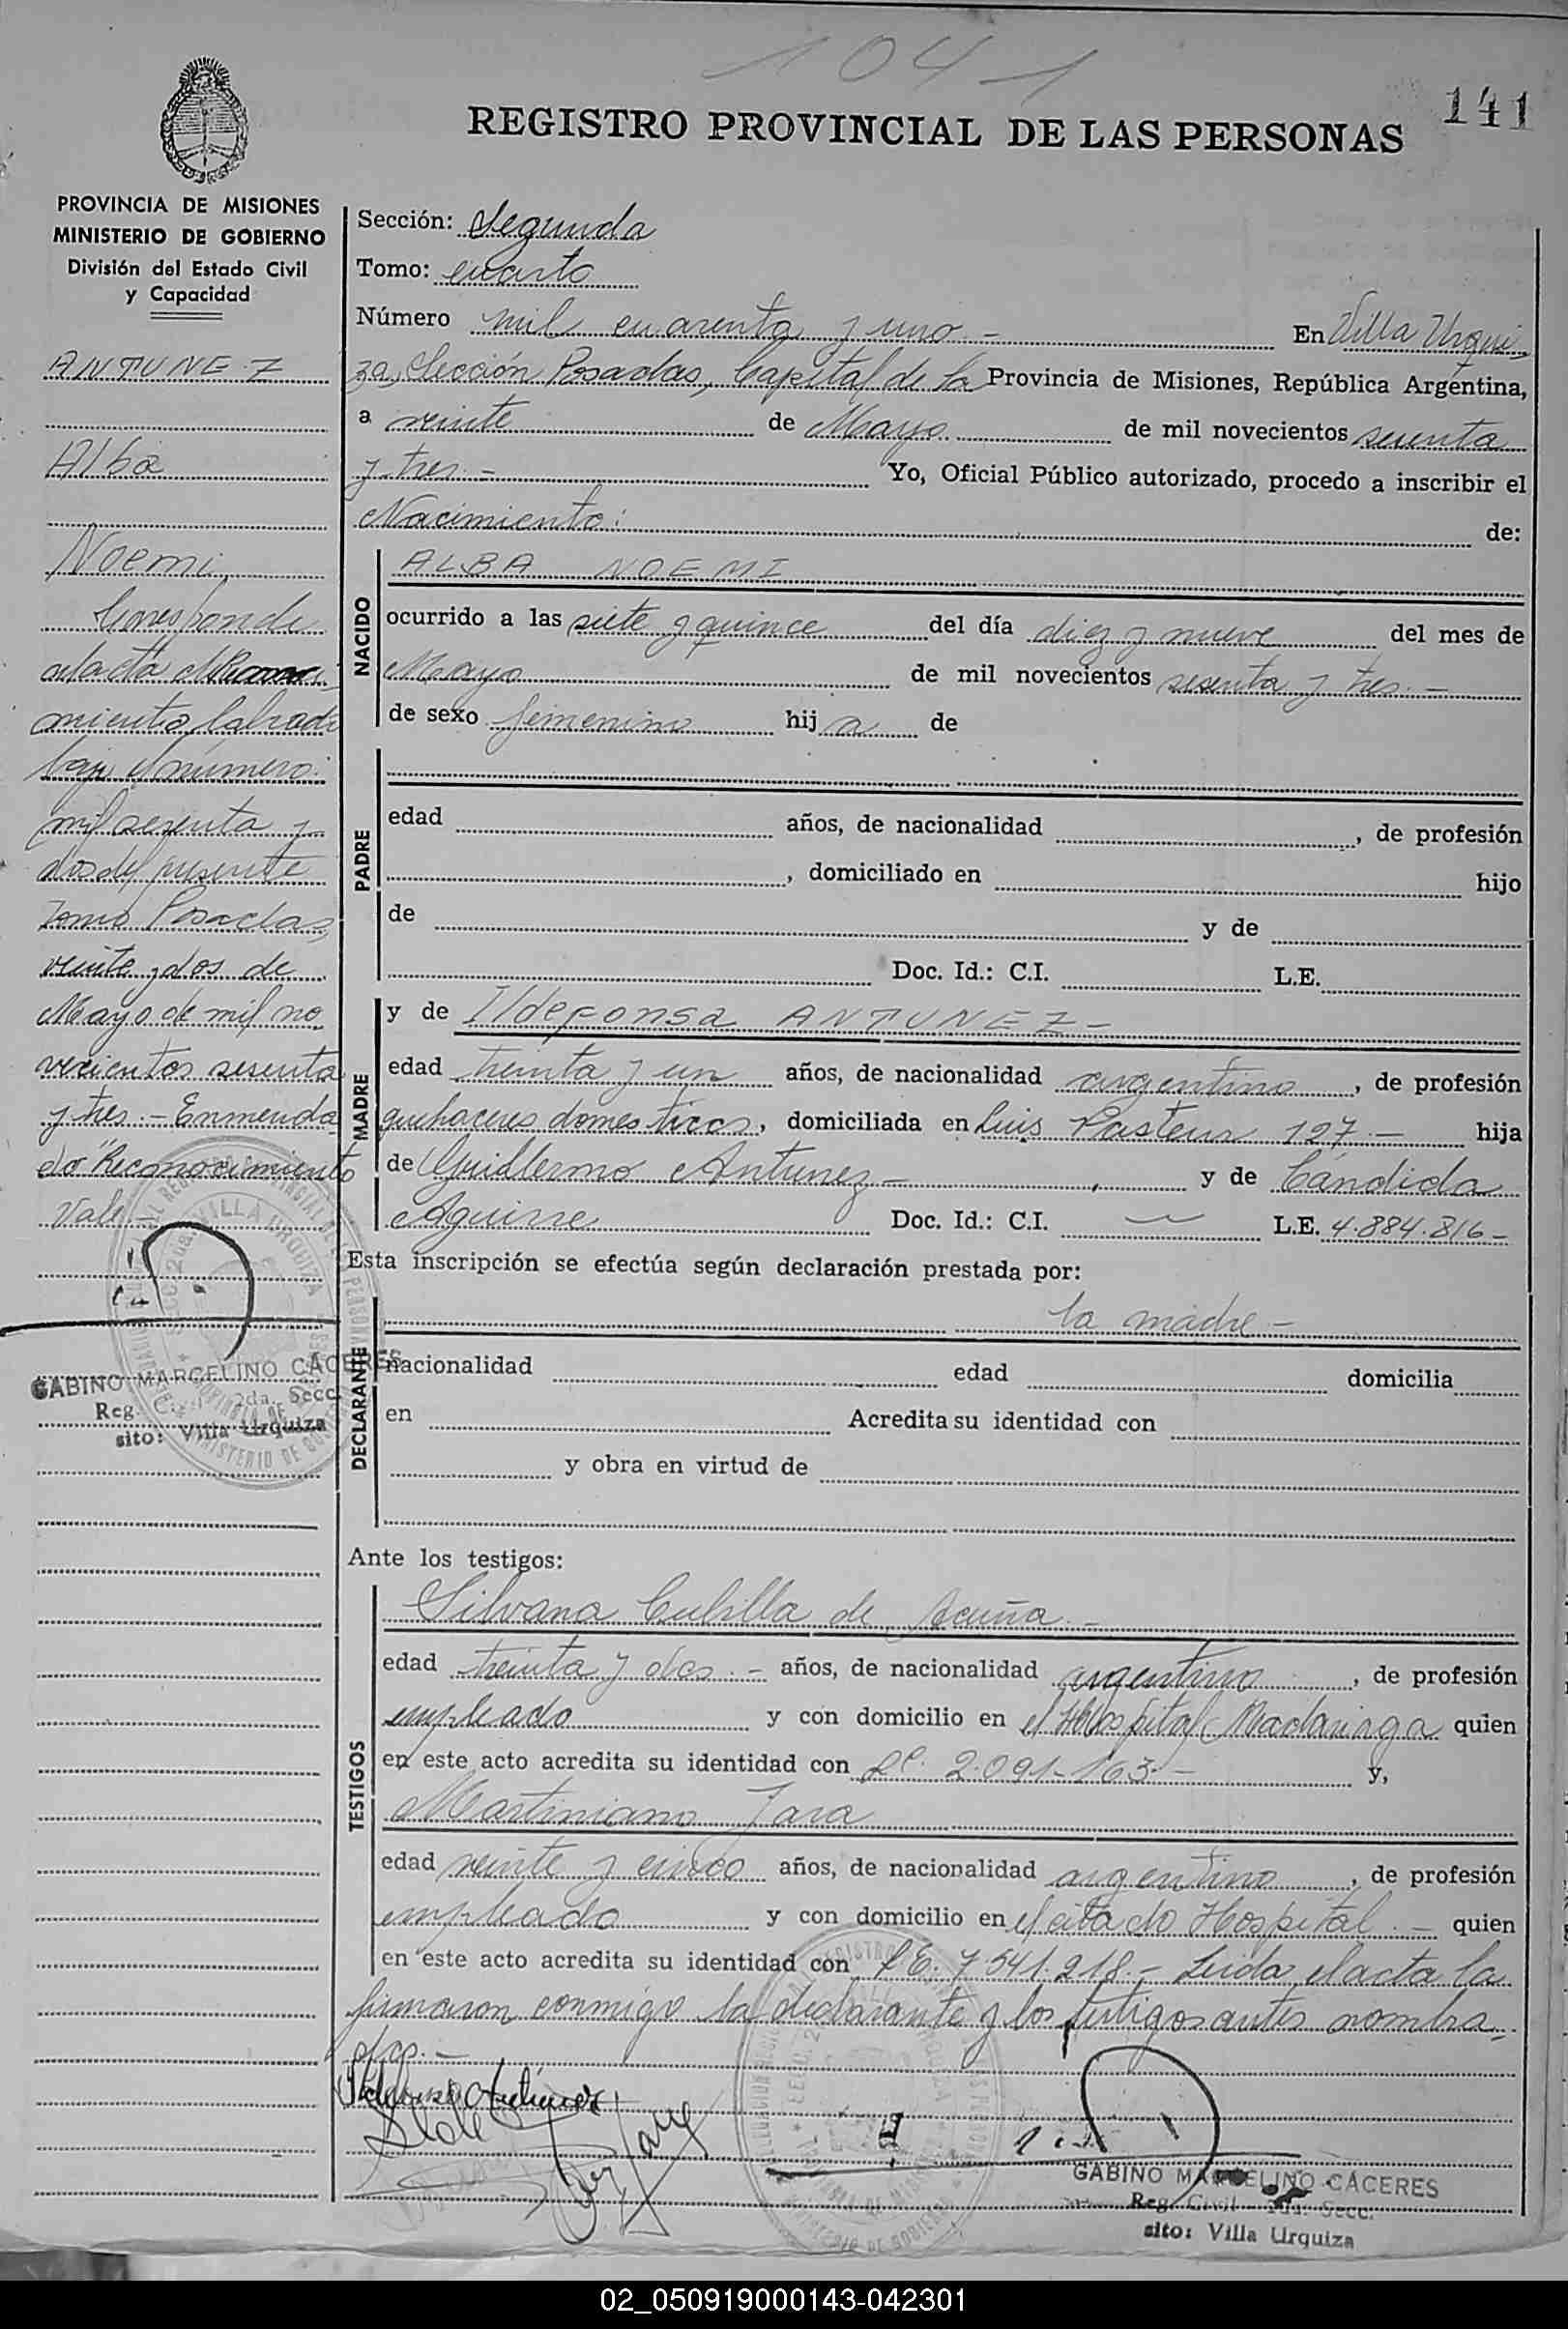 1041
141
REGISTRO PROVINCIAL DE LAS PERSONAS
PROVINCIA DE MISIONES
MINISTERIO DE GOBIERNO
División del Estado Civil
y Capacidad
ANTUNEZ
Alba
Noemi
Corresponde
al acta de Reconoci
miento labrada
bajo el número:
mil sesenta y
dos del presente
tomo Posadas,
veinte y dos de
Mayo de mil no
vecientos sesenta
y tres.- Enmenda
do "Reconocimiento
Vale-
GABINO MARCELINO CACERES
Reg. Civil 2da. Secc.
sito: Villa Urquiza
Sección: Segunda
Tomo: cuarto
Número mil cuarenta y uno - En Villa Urqui
za, Sección Posadas, Capital de la Provincia de Misiones, República Argentina,
a veinte de Mayo de mil novecientos sesenta
y tres.- Yo, Oficial Público autorizado, procedo a inscribir el
Nacimiento: de:
NACIDO
ALBA NOEMI
ocurrido a las siete y quince del día diez y nueve del mes de
Mayo de mil novecientos sesenta y tres.-
de sexo femenino hija de
PADRE
edad años, de nacionalidad , de profesión
, domiciliado en hijo
de y de
Doc. Id.: C.I. L.E.
MADRE
y de Ildefonsa ANTUNEZ-
edad treinta y un años, de nacionalidad argentina, de profesión
quehaceres domesticos, domiciliada en Luis Pasteur 127.- hija
de Guillermo Antunez- y de Cándida
Aguirre Doc. Id.: C.I. L.E. 4.884.816-
Esta inscripción se efectúa según declaración prestada por:
DECLARANTE
la madre-
nacionalidad edad domicilia
en Acredita su identidad con
y obra en virtud de
Ante los testigos:
TESTIGOS
Silvana Cubilla de Acuña.-
edad treinta y dos.- años, de nacionalidad argentino, de profesión
empleado y con domicilio en el Hospital Madariaga quien
en este acto acredita su identidad con LC. 2.091.163- y,
Martiniano Jara
edad veinte y cinco años, de nacionalidad argentino, de profesión
empleado y con domicilio en el citado Hospital.- quien
en este acto acredita su identidad con L.E. 7.541.218.- Leida el acta la
firmaron conmigo la declarante y los testigos antes nombra
dos.-
Ildefonsa Antunez
GABINO MARCELINO CACERES
Reg. Civil 2da. Secc.
sito: Villa Urquiza
02_050919000143-042301